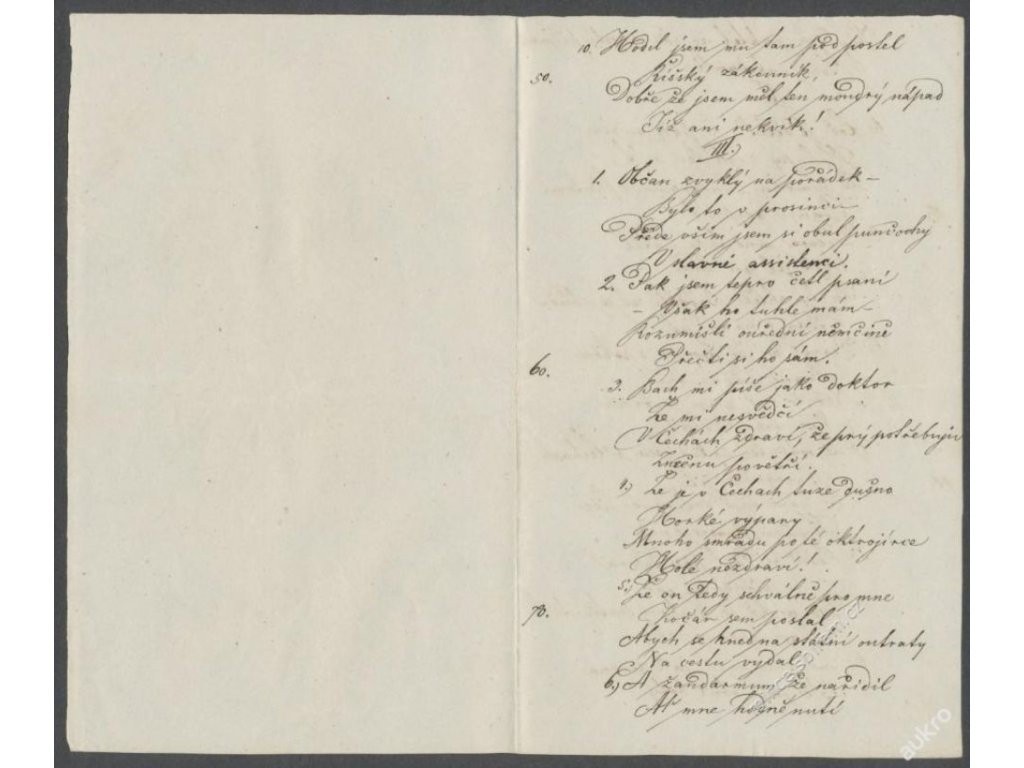 10. Hodil jsem mu tam pod postel
50.
Říšský zákonník,
Dobře že jsem měl ten moudrý nápad
Již ani nekvik!
III.)
1. Občan zvyklý na pořádek –
Bylo to v prosinci –
Přede vším jsem si obul punčochy
V slavné assistenci.
2. Pak jsem tepro četl psaní
– Však ho tuhle mám –
Rozumíšli ouřední němčině
Přečti si ho sám.
60.
3. Bach mi píše jako doktor
Že mi nesvědčí
V Čechách zdraví, že prý potřebuju
Změnu povětří.
4.) Že je v Čechach tuze dušno
Horké výpary
Mnoho smradu po té oktrojírce
Holé nezdraví!
5.) Že on tedy schválně pro mne
70.
Kočár sem poslal
Abych se hned na státní outraty
Na cestu vydal
6.) A žandarmum že nařídil
Ať mne hodně nutí
aukro